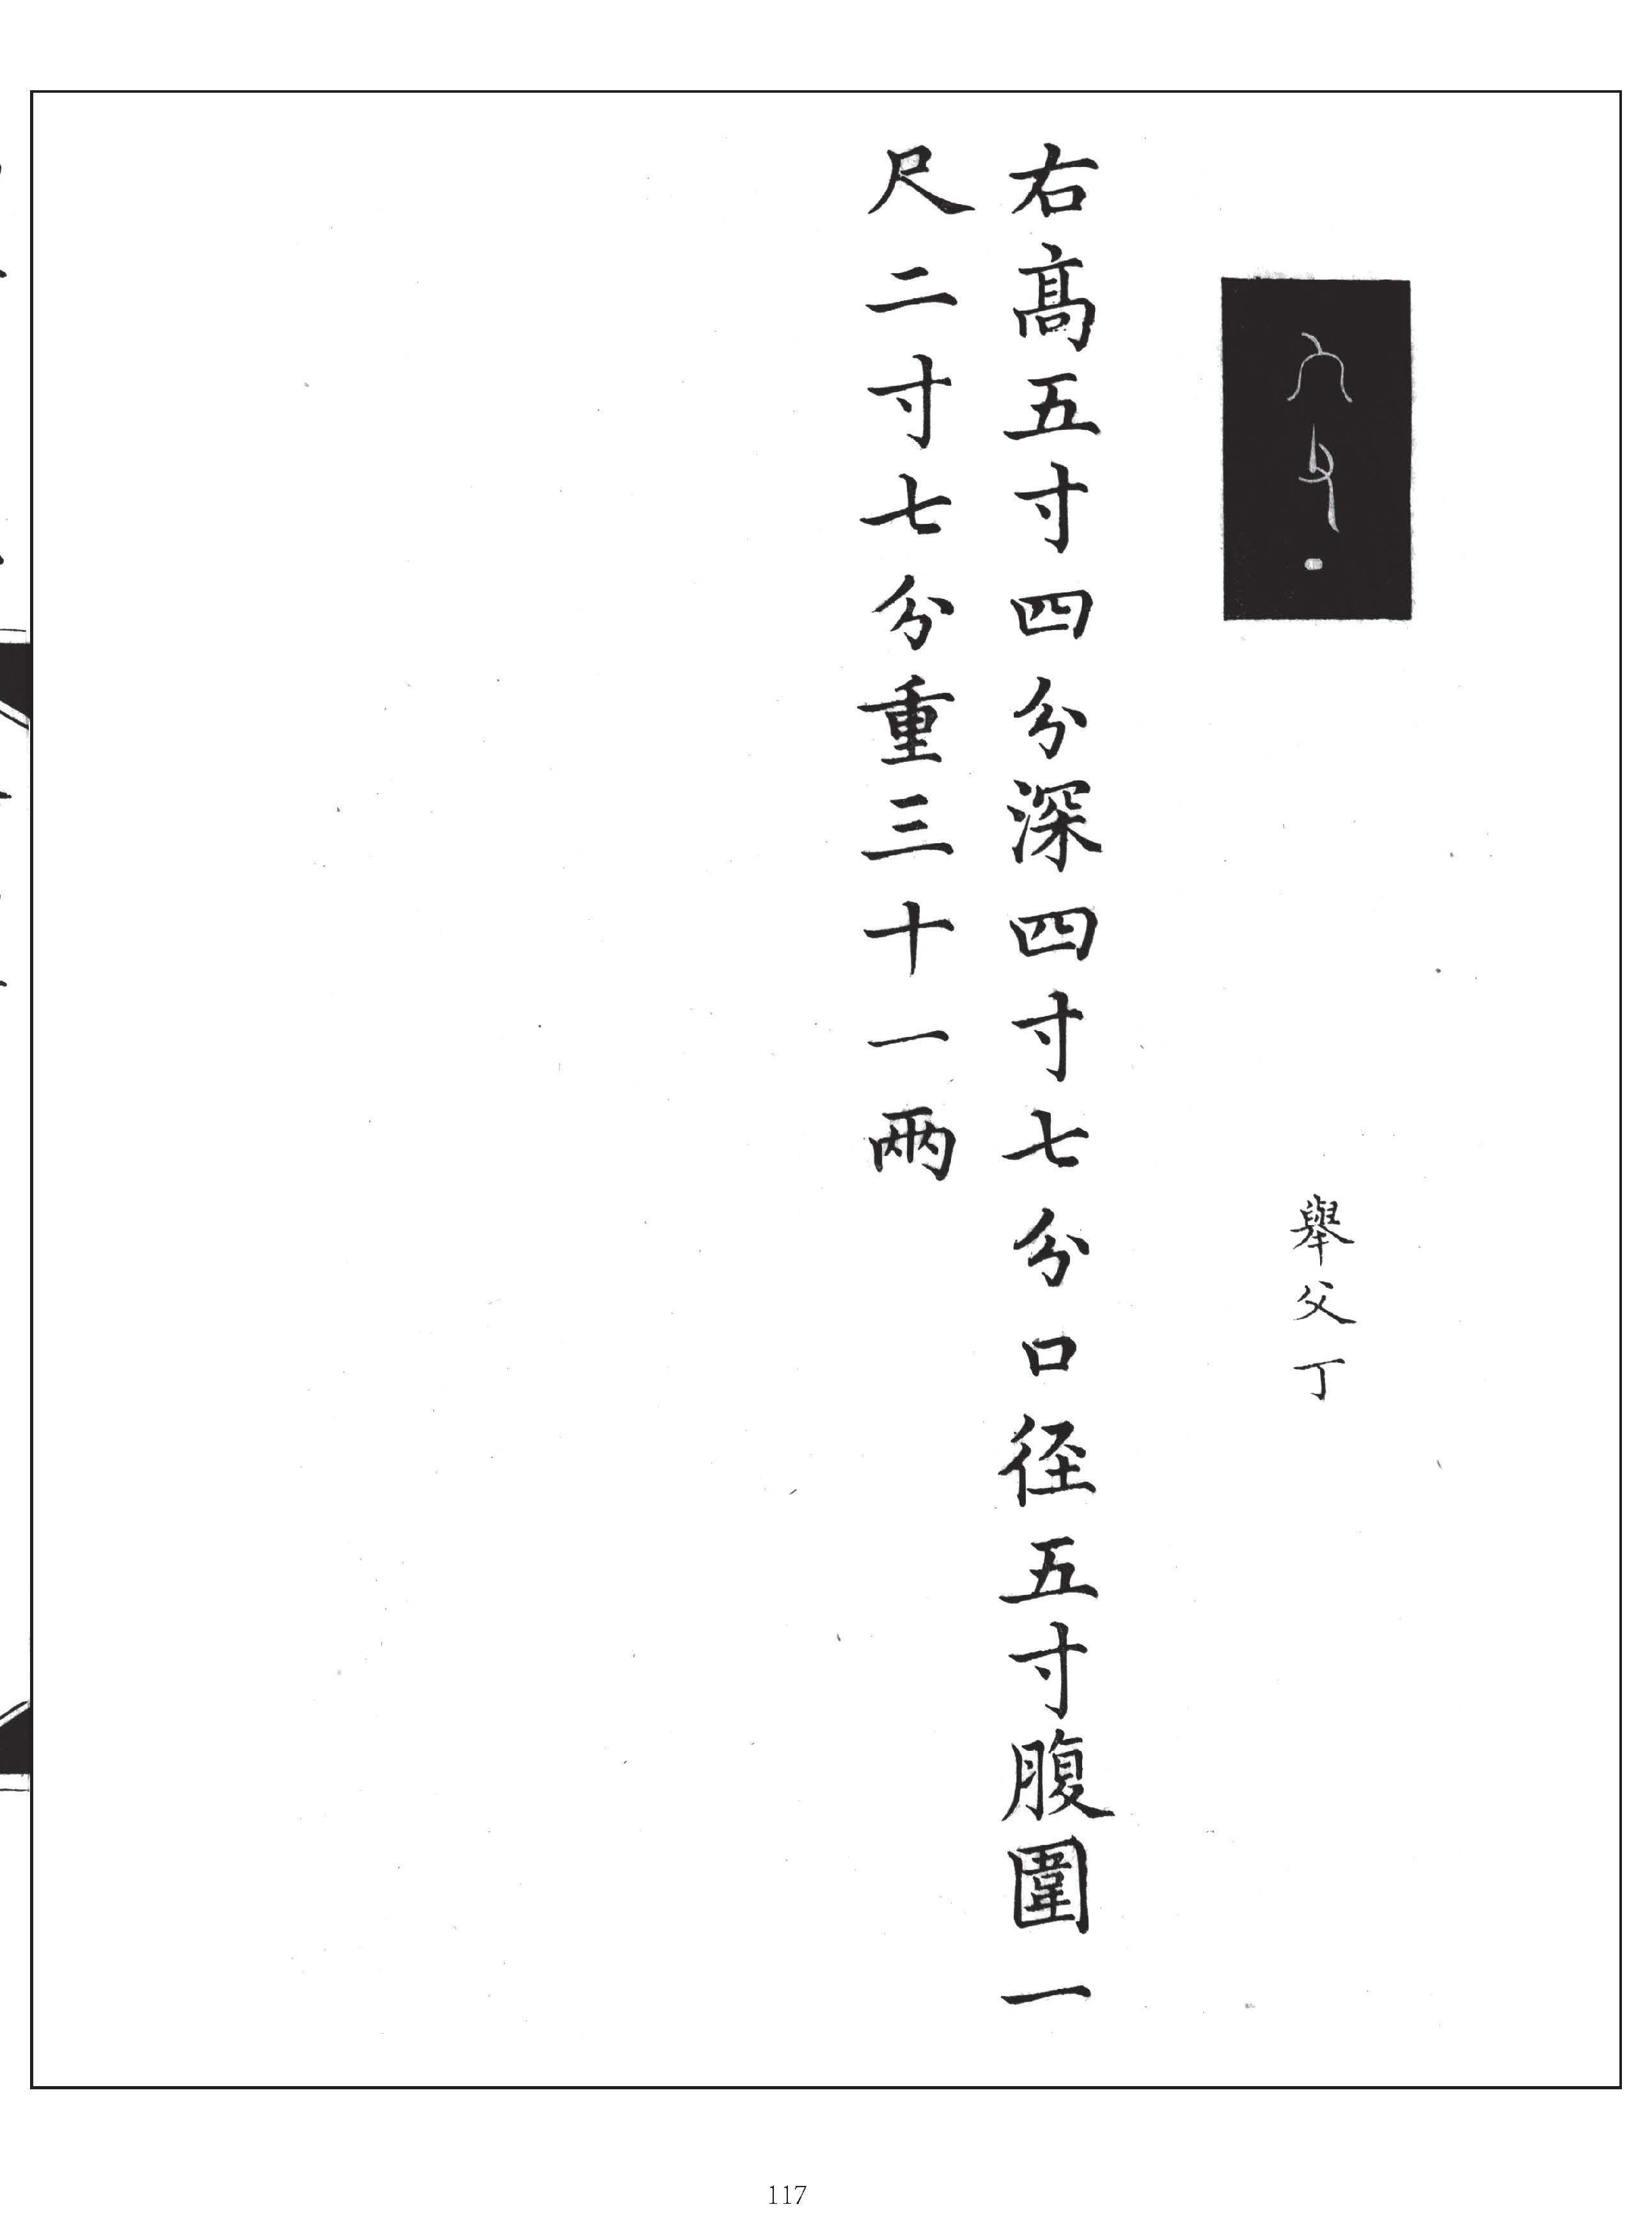 舉父丁
右高五寸四分深四寸七分口径五寸腹圍一
尺二寸七分重三十一兩
117